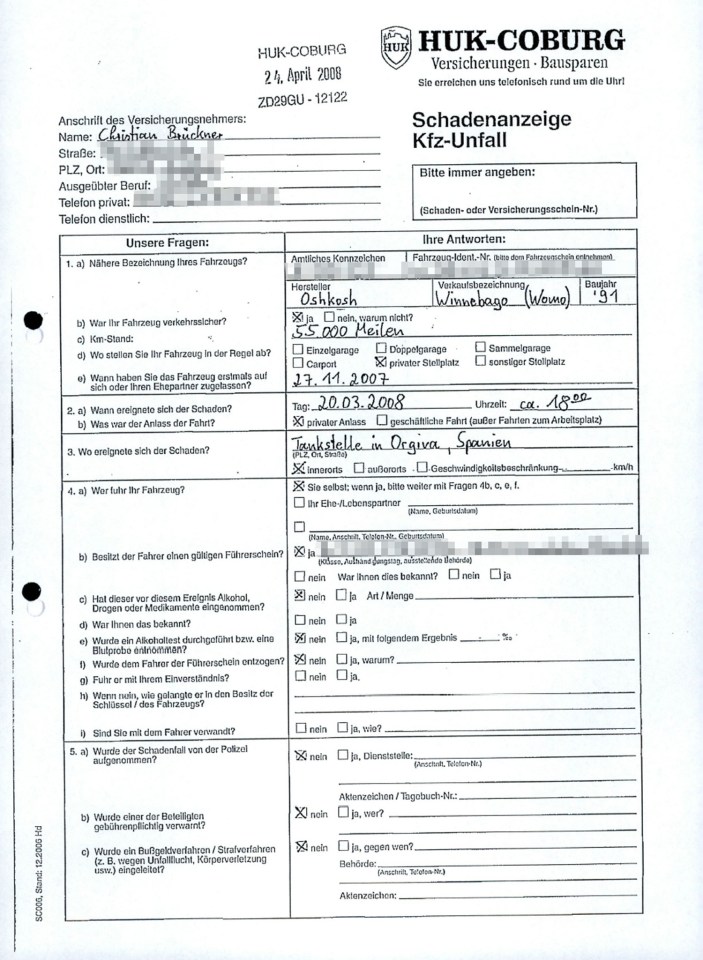 HUK-COBURG
24. April 2008
ZD29GU - 12122
HUK
HUK-COBURG
Versicherungen · Bausparen
Sie erreichen uns telefonisch rund um die Uhr!
Schadenanzeige
Kfz-Unfall
Anschrift des Versicherungsnehmers:
Name: Christian Brückner
Straße:
PLZ, Ort:
Ausgeübter Beruf:
Telefon privat:
Telefon dienstlich:
Bitte immer angeben:
(Schaden- oder Versicherungsschein-Nr.)
Unsere Fragen: Ihre Antworten:
1. a) Nähere Bezeichnung Ihres Fahrzeugs?
Amtliches Kennzeichen Fahrzeug-Ident.-Nr. (bitte dem Fahrzeugschein entnehmen)
Hersteller Verkaufsbezeichnung Baujahr
Oshkosh Winnebago (Womo) '91
b) War Ihr Fahrzeug verkehrssicher? ja nein, warum nicht?
c) Km-Stand: 55 000 Meilen
d) Wo stellen Sie Ihr Fahrzeug in der Regel ab? Einzelgarage Doppelgarage Sammelgarage
Carport privater Stellplatz sonstiger Stellplatz
e) Wann haben Sie das Fahrzeug erstmals auf
sich oder Ihren Ehepartner zugelassen? 27.11.2007
2. a) Wann ereignete sich der Schaden? Tag: 20.03.2008 Uhrzeit: ca. 18 00
b) Was war der Anlass der Fahrt? privater Anlass geschäftliche Fahrt (außer Fahrten zum Arbeitsplatz)
3. Wo ereignete sich der Schaden? Tankstelle in Orgiva, Spanien
(PLZ, Ort, Straße)
innerorts außerorts Geschwindigkeitsbeschränkung km/h
4. a) Wer fuhr Ihr Fahrzeug? Sie selbst; wenn ja, bitte weiter mit Fragen 4b, c, e, f.
Ihr Ehe-/Lebenspartner
(Name, Geburtsdatum)
(Name, Anschrift, Telefon-Nr., Geburtsdatum)
b) Besitzt der Fahrer einen gültigen Führerschein? ja
(Klasse, Aushändigungstag, ausstellende Behörde)
nein War Ihnen dies bekannt? nein ja
c) Hat dieser vor diesem Ereignis Alkohol,
Drogen oder Medikamente eingenommen? nein ja Art / Menge
d) War Ihnen das bekannt? nein ja
e) Wurde ein Alkoholtest durchgeführt bzw. eine
Blutprobe entnommen? nein ja, mit folgendem Ergebnis ‰
f) Wurde dem Fahrer der Führerschein entzogen? nein ja, warum?
g) Fuhr er mit Ihrem Einverständnis? nein ja,
h) Wenn nein, wie gelangte er in den Besitz der
Schlüssel / des Fahrzeugs?
i) Sind Sie mit dem Fahrer verwandt? nein ja, wie?
5. a) Wurde der Schadenfall von der Polizei
aufgenommen? nein ja, Dienststelle:
(Anschrift, Telefon-Nr.)
Aktenzeichen / Tagebuch-Nr.:
b) Wurde einer der Beteiligten
gebührenpflichtig verwarnt? nein ja, wer?
c) Wurde ein Bußgeldverfahren / Strafverfahren
(z. B. wegen Unfallflucht, Körperverletzung
usw.) eingeleitet? nein ja, gegen wen?
Behörde:
(Anschrift, Telefon-Nr.)
Aktenzeichen:
SC006, Stand: 12.2006 Hd